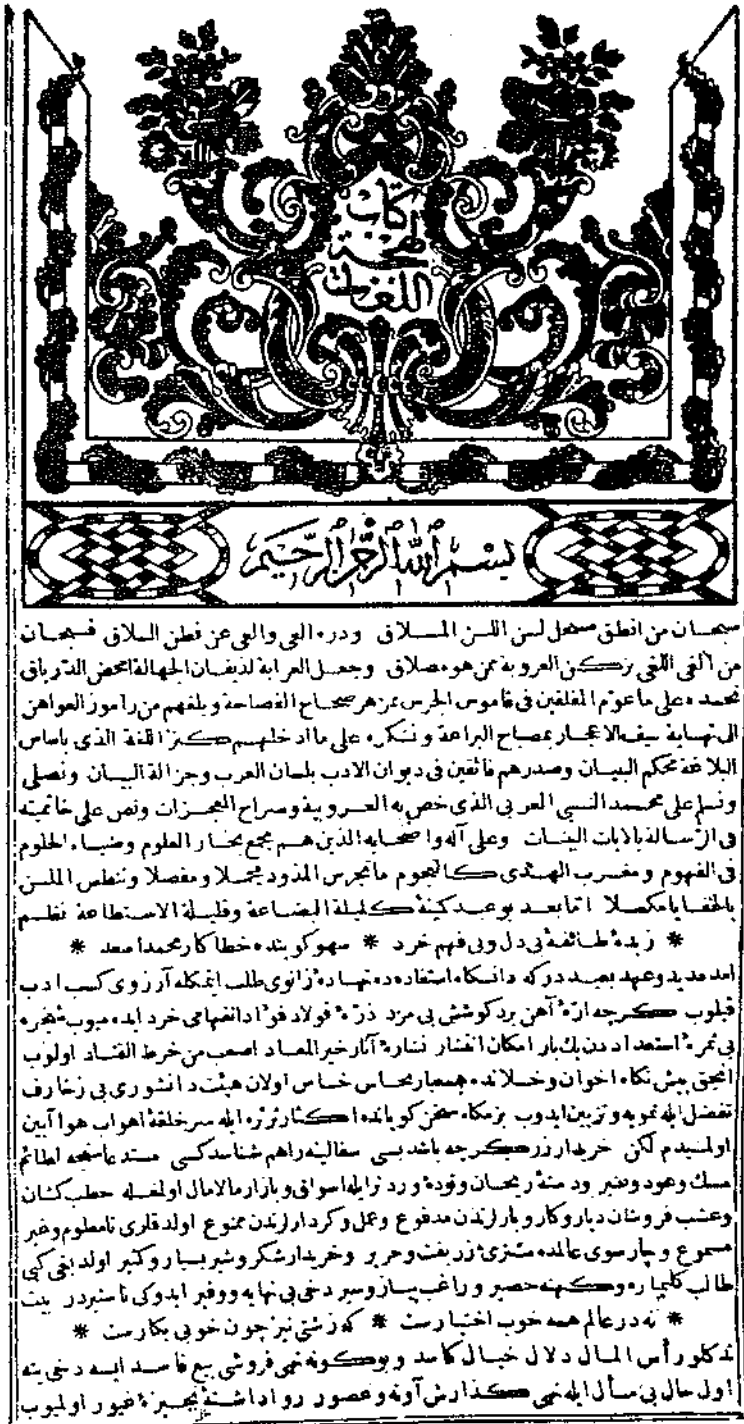 كتاب
لهجة
اللغات
بسم الله الرحمن الرحيم
سبحان من انطق مسحل لسن اللسن المسلاق ودره العى والعى عن فطن الملاق فسبحان
من ألقى اللغى بركن العروبة ممن هو مصلاق وجعل العرابة لذيفان الجهالة امحض الدرياق
نحمده على ما عوم المفلقين فى قاموس الجرس بمزهر صحاح الفصاحة وبلغهم من راموز العواهن
الى نهاية سيف الاعجاز بمصباح البراعة ونشكره على ما ادخلهم كنز اللغة الذى باساس
البلاغة محكم البيان وصدرهم فائقين فى ديوان الادب بلسان العرب وجزالة البيان ونصلى
ونسلم على محمد النبى العربى الذى خص به العروبية وسراح المعجزات ونص على خاتميته
فى الرسالة بالايات البينات وعلى آله واصحابه الذين هم مجمع بحار العلوم وضياء الحلوم
فى الفهوم ومغرب الهدى كالنجوم ما تجرس المذود مجملا ومفصلا وتنطس الملسن
بالخفايا مكملا اما بعد بو عبد كمينهٔ كليلة البضاعة وقليلة الاستطاعة نظم
* زبدهٔ طائفهٔ بى دل وبى فهم خرد * سهو كو بنده خطاكار محمد اسعد *
امد مديد وعهد بعيد در كه دانسكاه استفاده ده نهادهٔ زانوى طلب ايتمكله آرزوى كسب ادب
قيلوب كرچه ارهٔ آهن برد كوشش بى مزد ذرهٔ فولاد فؤاد انفهامى خرد ايده ميوب شجرهٔ
بى ثمرهٔ استعداددن يك بار امكان انتشار نشارهٔ آثار خير المعاد اصعب من خرط القتاد اولوب
انجق پيش نكاه اخوان وخلانده همعيار نحاس خاس اولان هيئت دانشورى بى زخارف
تفضل ايله تمويه وتزيين ايدوب بزمكاه سخن كويانده اكثار ثرثره ايله سر حلقهٔ اهواب هوا آيين
اولمشيدم لكن خريدار زر كرچه باشد بسى سفالينه راهم شناسد كسى مستدعاسنجه لطائم
مسك وعود وعنبر ودمنهٔ ريحان وتودهٔ ورد تر ايله اسواق وبازار مالامال اولمغله حطب كشان
وعشب فروشان ديار وكار وبارلرندن مدفوع وعمل وكردارلرندن ممنوع اولدقلرى نامعلوم وغير
مسموع وچارسوى عالمده مشترى زربفت وحرير وخريدار شكر وشير بسيار وكثير اولديغى كبى
طالب كليمپاره وكهنه حصير وراغب پياز وسير دخى بى نهايه ووفير ايدوكى ناستيردر بيت
* نه در عالم همه خوب اختيارست * كه زشتى نيز چون خوبى بكارست *
ندكلو رأس المال دلال خيال كاسد وبوكونه نهى فروشى بيع فاسد ايسه دخى ينه
اول حال بى مسأل ايله نهى كذارش آونه وعصور رواداشتهٔ نحيزهٔ غيور اولميوب